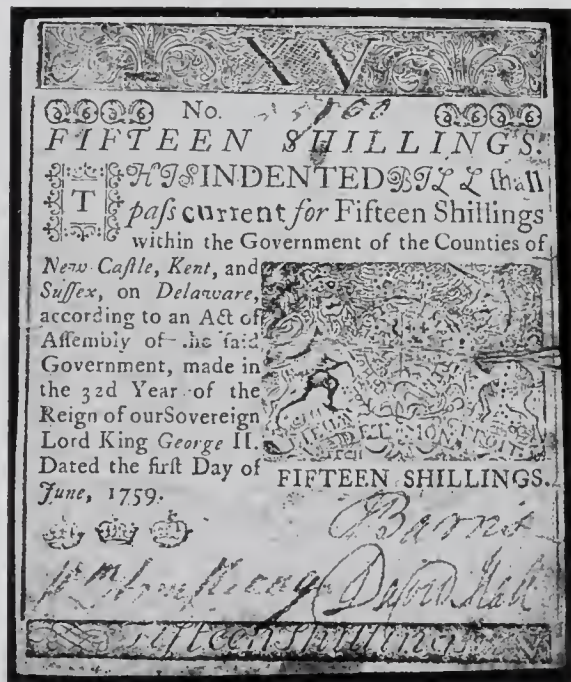 XV
No. 5860
FIFTEEN SHILLINGS.
THIS INDENTED BILL ſhall
paſs current for Fifteen Shillings
within the Government of the Counties of
New-Caſtle, Kent, and
Suſſex, on Delaware,
according to an Act of
Aſſembly of the ſaid
Government, made in
the 32d Year of the
Reign of our Sovereign
Lord King George II.
Dated the firſt Day of
June, 1759.
FIFTEEN SHILLINGS.
David Hall
Fifteen Shillings